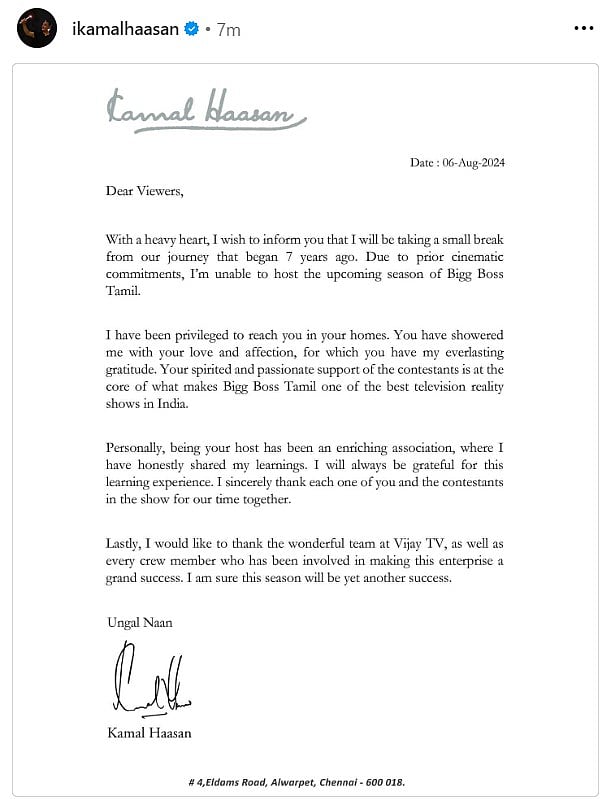 ikamalhaasan • 7m
Kamal Haasan
Date : 06-Aug-2024
Dear Viewers,
With a heavy heart, I wish to inform you that I will be taking a small break
from our journey that began 7 years ago. Due to prior cinematic
commitments, I'm unable to host the upcoming season of Bigg Boss
Tamil.
I have been privileged to reach you in your homes. You have showered
me with your love and affection, for which you have my everlasting
gratitude. Your spirited and passionate support of the contestants is at the
core of what makes Bigg Boss Tamil one of the best television reality
shows in India.
Personally, being your host has been an enriching association, where I
have honestly shared my learnings. I will always be grateful for this
learning experience. I sincerely thank each one of you and the contestants
in the show for our time together.
Lastly, I would like to thank the wonderful team at Vijay TV, as well as
every crew member who has been involved in making this enterprise a
grand success. I am sure this season will be yet another success.
Ungal Naan
Kamal Haasan
# 4,Eldams Road, Alwarpet, Chennai - 600 018.